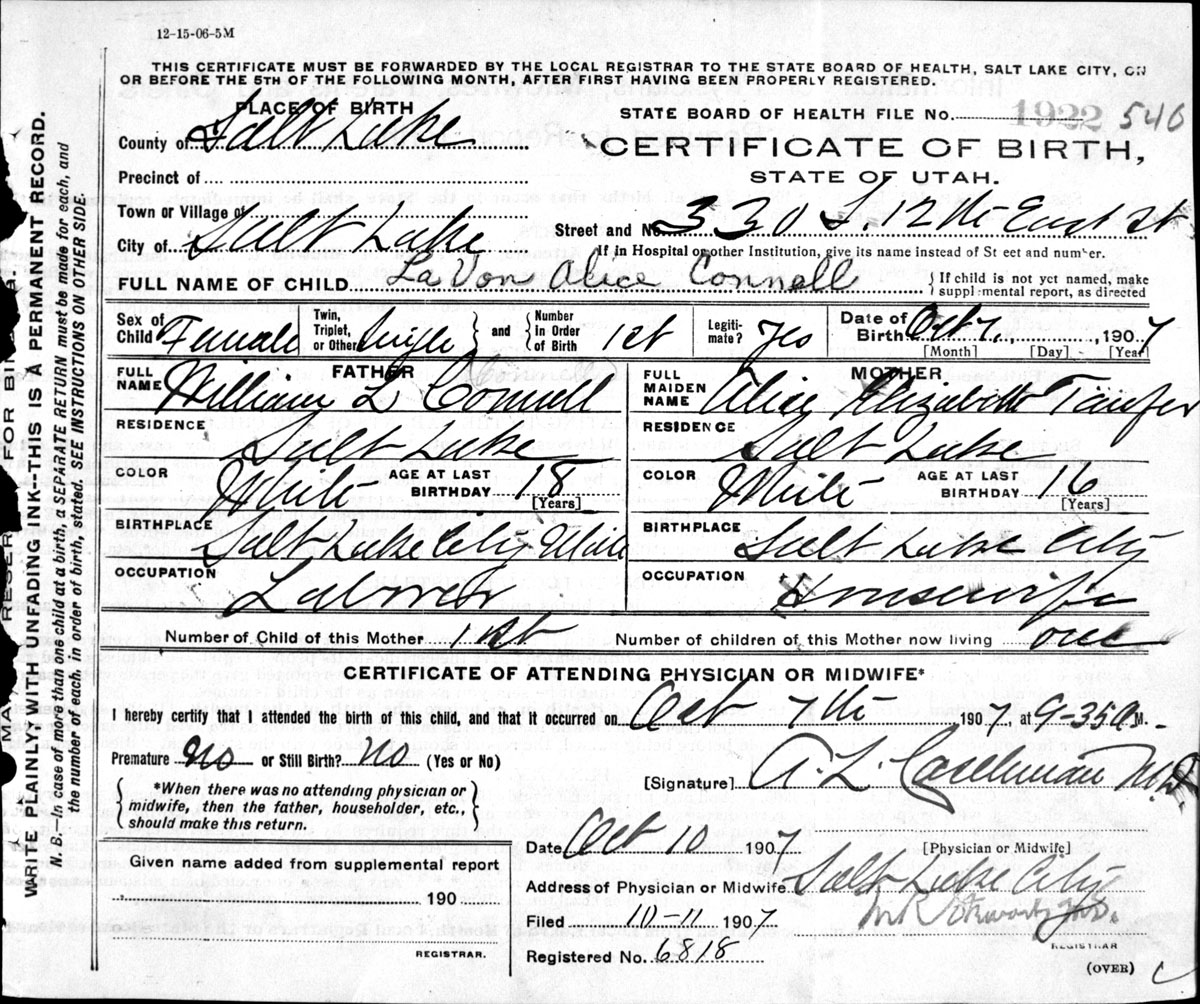 12-15-06-5M
THIS CERTIFICATE MUST BE FORWARDED BY THE LOCAL REGISTRAR TO THE STATE BOARD OF HEALTH, SALT LAKE CITY, ON
OR BEFORE THE 5TH OF THE FOLLOWING MONTH, AFTER FIRST HAVING BEEN PROPERLY REGISTERED.
PLACE OF BIRTH
STATE BOARD OF HEALTH FILE No. 1922 546
County of Salt Lake
CERTIFICATE OF BIRTH,
STATE OF UTAH.
Precinct of
Town or Village of
Street and No 330 S. 12th East St
City of Salt Lake
If in Hospital or other Institution, give its name instead of St eet and number.
FULL NAME OF CHILD La Von Alice Connell
{ If child is not yet named, make
suppl mental report, as directed
Sex of Child Female
Twin, Triplet, or Other Single } and { Number in Order of Birth 1st
Legiti-mate? Yes
Date of Birth Oct 7, 1907
[Month] [Day] [Year]
FATHER
FULL NAME William L Connell
RESIDENCE Salt Lake
COLOR White AGE AT LAST BIRTHDAY 18
[Years]
BIRTHPLACE Salt Lake City
OCCUPATION Laborer
MOTHER
FULL MAIDEN NAME Alice Elizabeth
RESIDENCE Salt Lake
COLOR White AGE AT LAST BIRTHDAY 16
[Years]
BIRTHPLACE Salt Lake City
OCCUPATION Housewife
Number of Child of this Mother 1st Number of children of this Mother now living one
CERTIFICATE OF ATTENDING PHYSICIAN OR MIDWIFE*
I hereby certify that I attended the birth of this child, and that it occurred on Oct 7th 1907, at 9-35 a M.
Premature no or Still Birth? no (Yes or No)
[Signature] A. L. M.D.
[Physician or Midwife]
{ *When there was no attending physician or
midwife, then the father, householder, etc.,
should make this return. }
Date Oct 10 1907
Given name added from supplemental report
190
REGISTRAR.
Address of Physician or Midwife Salt Lake City
Filed 10-11 1907
REGISTRAR
Registered No. 6818
(OVER)
MAR RESER FOR BIN
WRITE PLAINLY, WITH UNFADING INK--THIS IS A PERMANENT RECORD.
N. B.--In case of more than one child at a birth, a SEPARATE RETURN must be made for each, and
the number of each, in order of birth, stated. SEE INSTRUCTIONS ON OTHER SIDE.